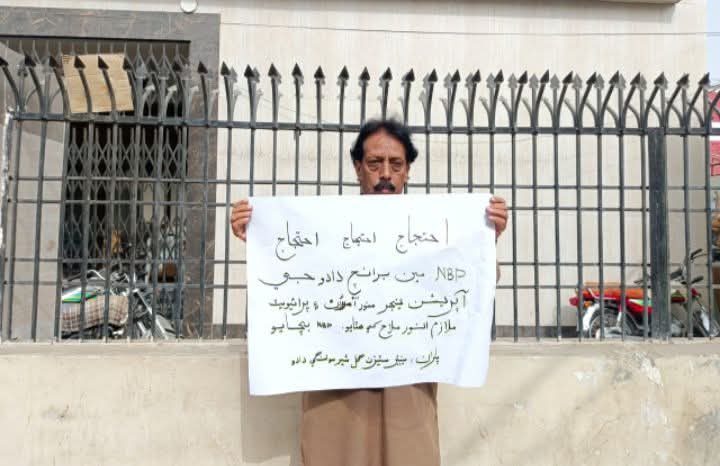 احتجاج احتجاج احتجاج
NBP مين برانچ دادو جي
آپريشن مينيجر منور ۽ پرائيويٽ
ملازم انور ملاح کي هٽايو، NBP بچايو
پاران: سينيئر سٽيزن گل شير دادو